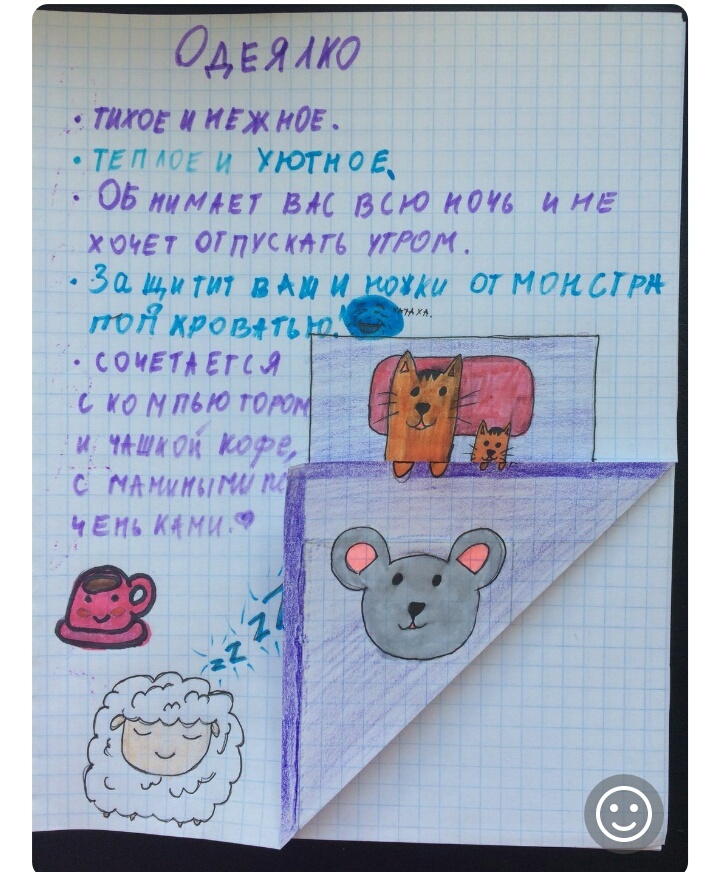 ОДЕЯЛКО
· ТИХОЕ И НЕЖНОЕ.
· ТЕПЛОЕ И УЮТНОЕ.
· ОБНИМАЕТ ВАС ВСЮ НОЧЬ И НЕ
ХОЧЕТ ОТПУСКАТЬ УТРОМ.
· ЗаЩИТИТ ВАШИ НОЖКИ ОТ МОНСТРА
ПОД КРОВАТЬЮ!
· СОЧЕТАЕТСЯ
С КОМПЬЮТОРОМ
И ЧАШКОЙ КОФЕ,
С МАМИНЫМИ ПЕ
ЧЕНЬКАМИ.
zzzz